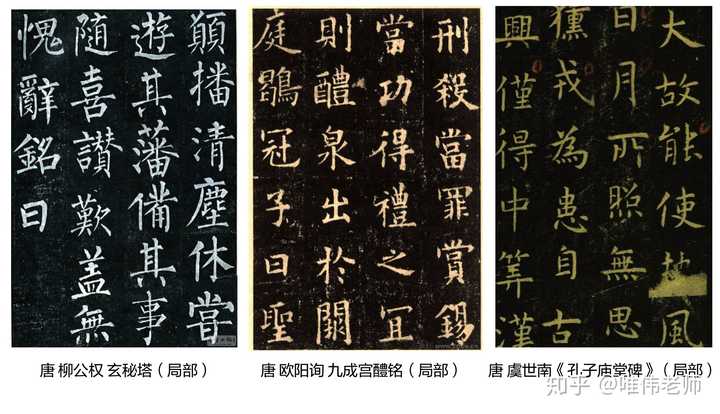 顛播清塵休甞
遊其藩備其事
隨喜讃歎蓋無
愧辭銘曰
唐 柳公权 玄秘塔（局部）
刑殺當罪賞錫
當功得禮之冝
則醴泉出於闕
庭鶡冠子曰聖
唐 欧阳询 九成宫醴铭（局部）
大故能使地風
日月所照無思
獯戎為患自古
興僅得中筭漢
唐 虞世南《孔子庙堂碑》（局部）
知乎 @唯伟老师